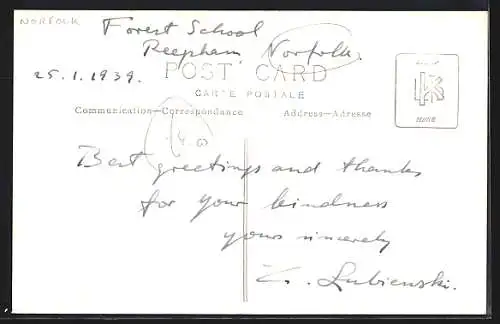 NORFOLK
Forest School
Reepham, Norfolk.
25.1.1939.
POST CARD
CARTE POSTALE
Communication—Correspondance
Address—Adresse
HERE
Best greetings and thanks
for your kindness
yours sincerely
Z. Lubienski.